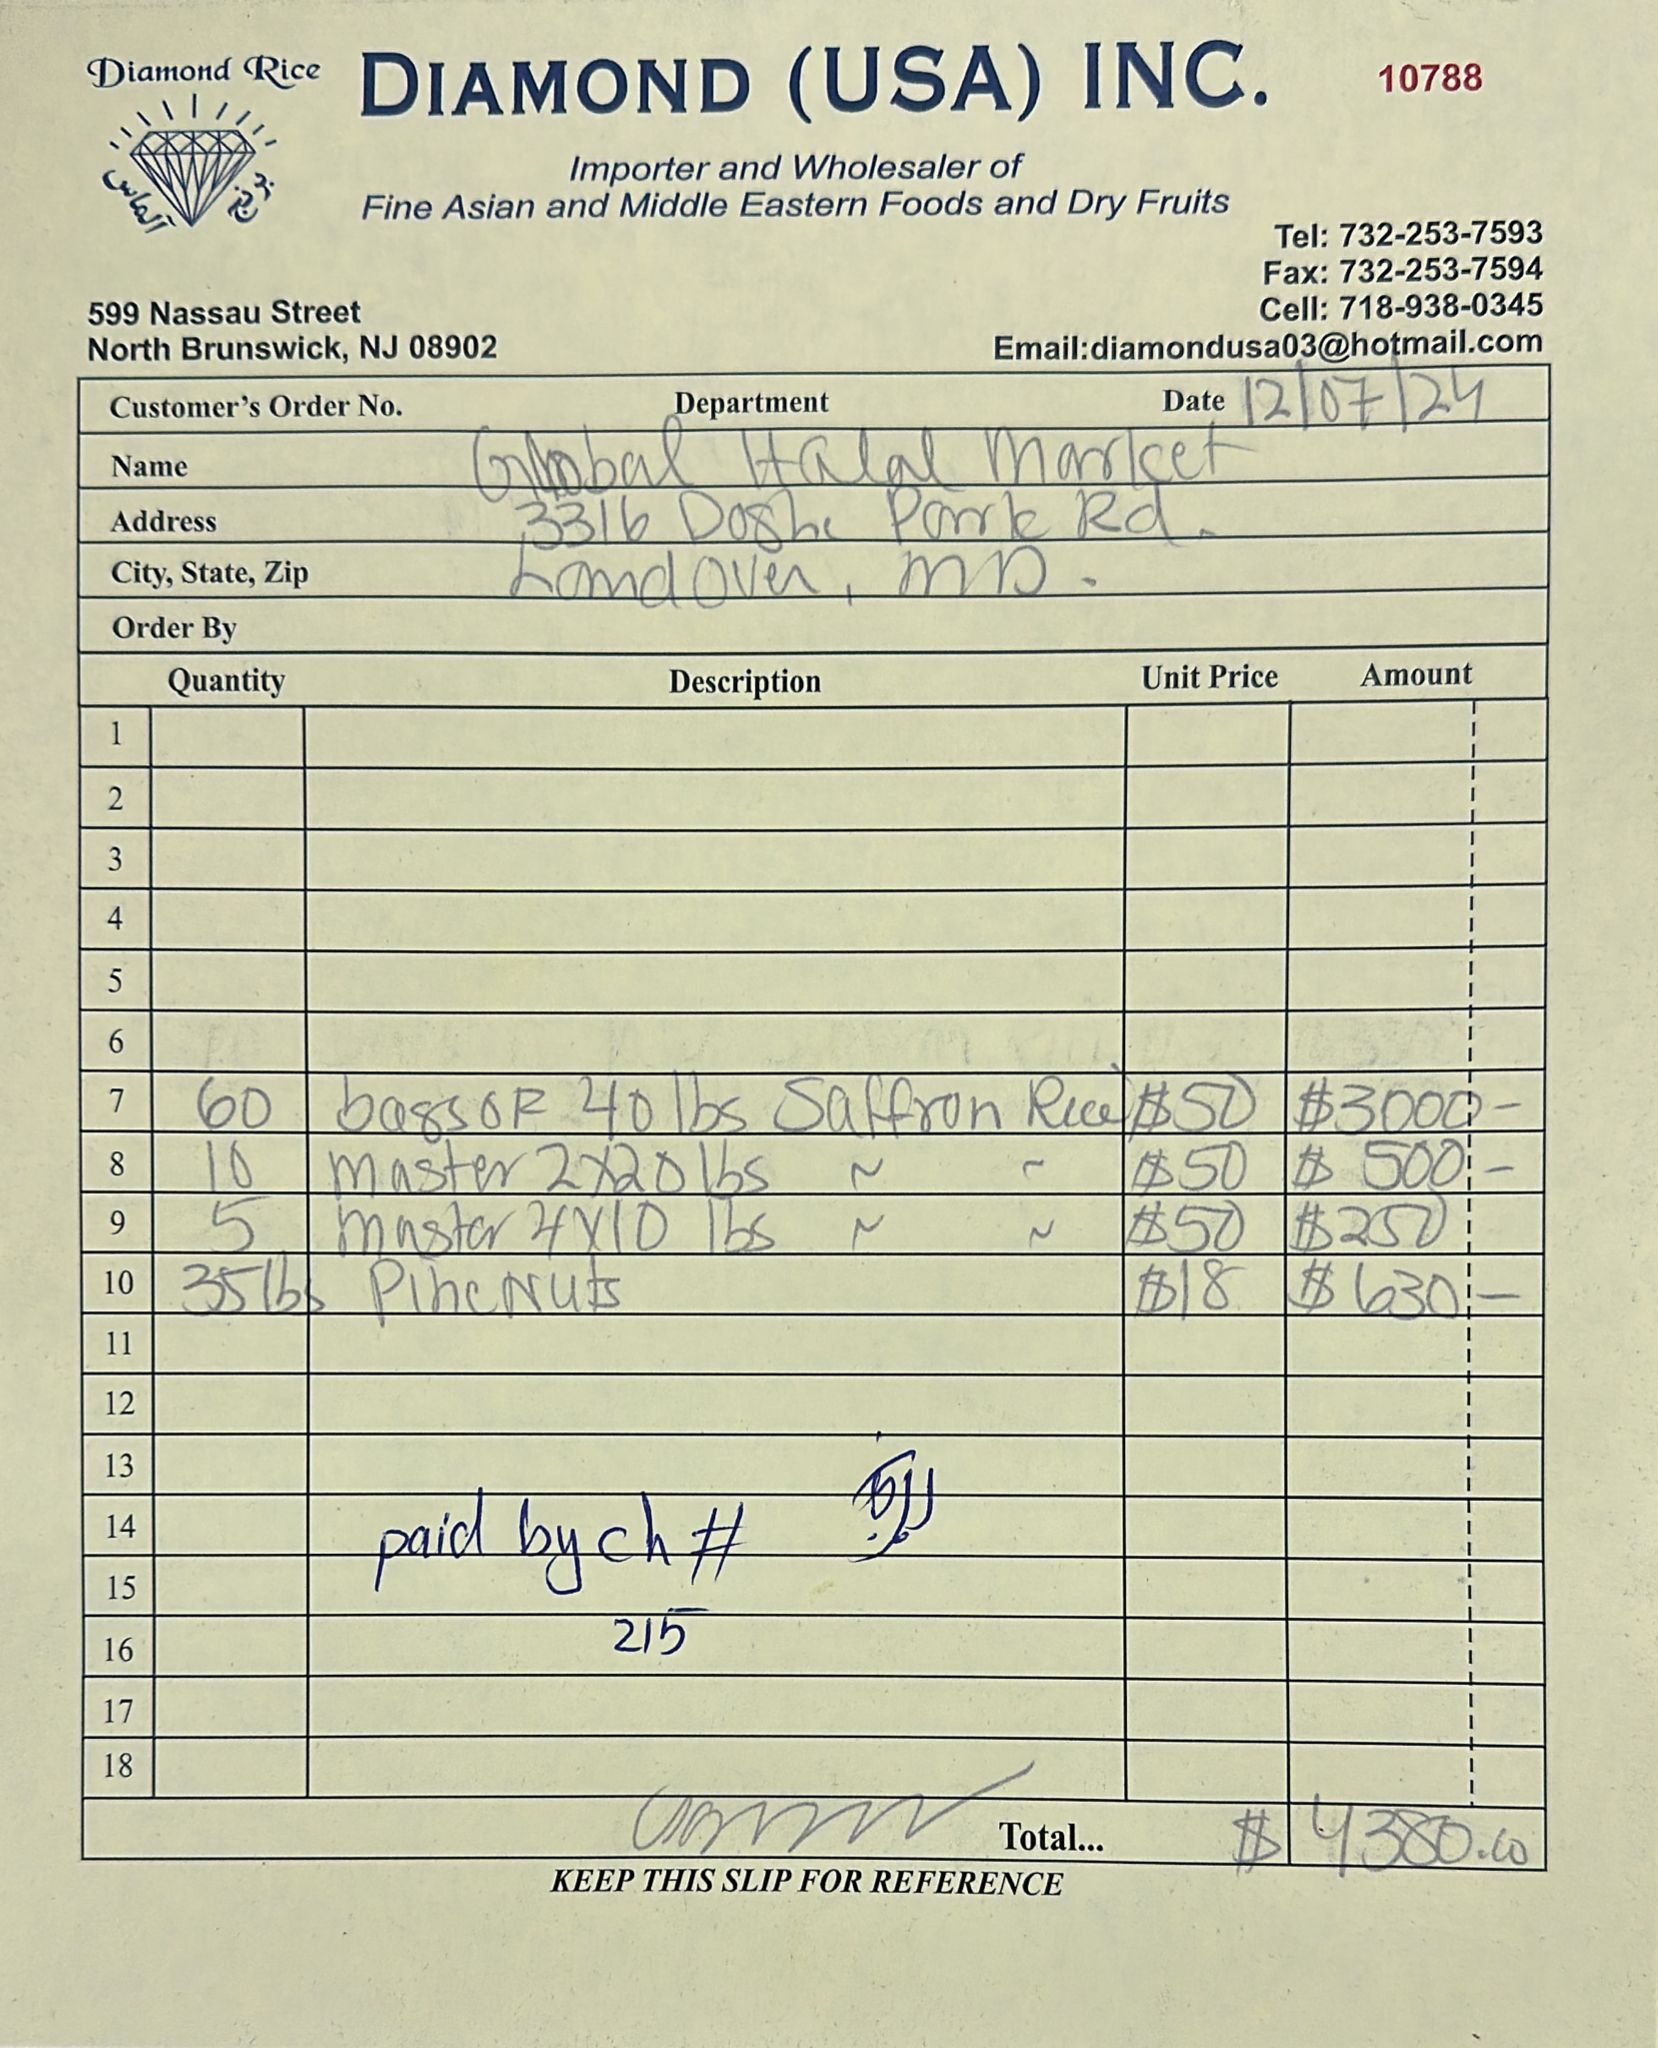 Diamond Rice
DIAMOND (USA) INC.
10788
الماس
برنج
Importer and Wholesaler of
Fine Asian and Middle Eastern Foods and Dry Fruits
Tel: 732-253-7593
Fax: 732-253-7594
Cell: 718-938-0345
Email:diamondusa03@hotmail.com
599 Nassau Street
North Brunswick, NJ 08902
Customer's Order No. Department Date 12/07/24
Name Global Halal Market
Address 3316 Park Rd.
City, State, Zip Landover, MD.
Order By
Quantity Description Unit Price Amount
1
2
3
4
5
6
7 60 bags OF 40 lbs Saffron Rice $50 $3000 -
8 10 master 2x20 lbs ~ ~ $50 $ 500 -
9 5 master 4x10 lbs ~ ~ $50 $250
10 35 lbs Pine Nuts $18 $ 630 -
11
12
13
14 paid by ch #
15
16 215
17
18
Total... $ 4380.00
KEEP THIS SLIP FOR REFERENCE